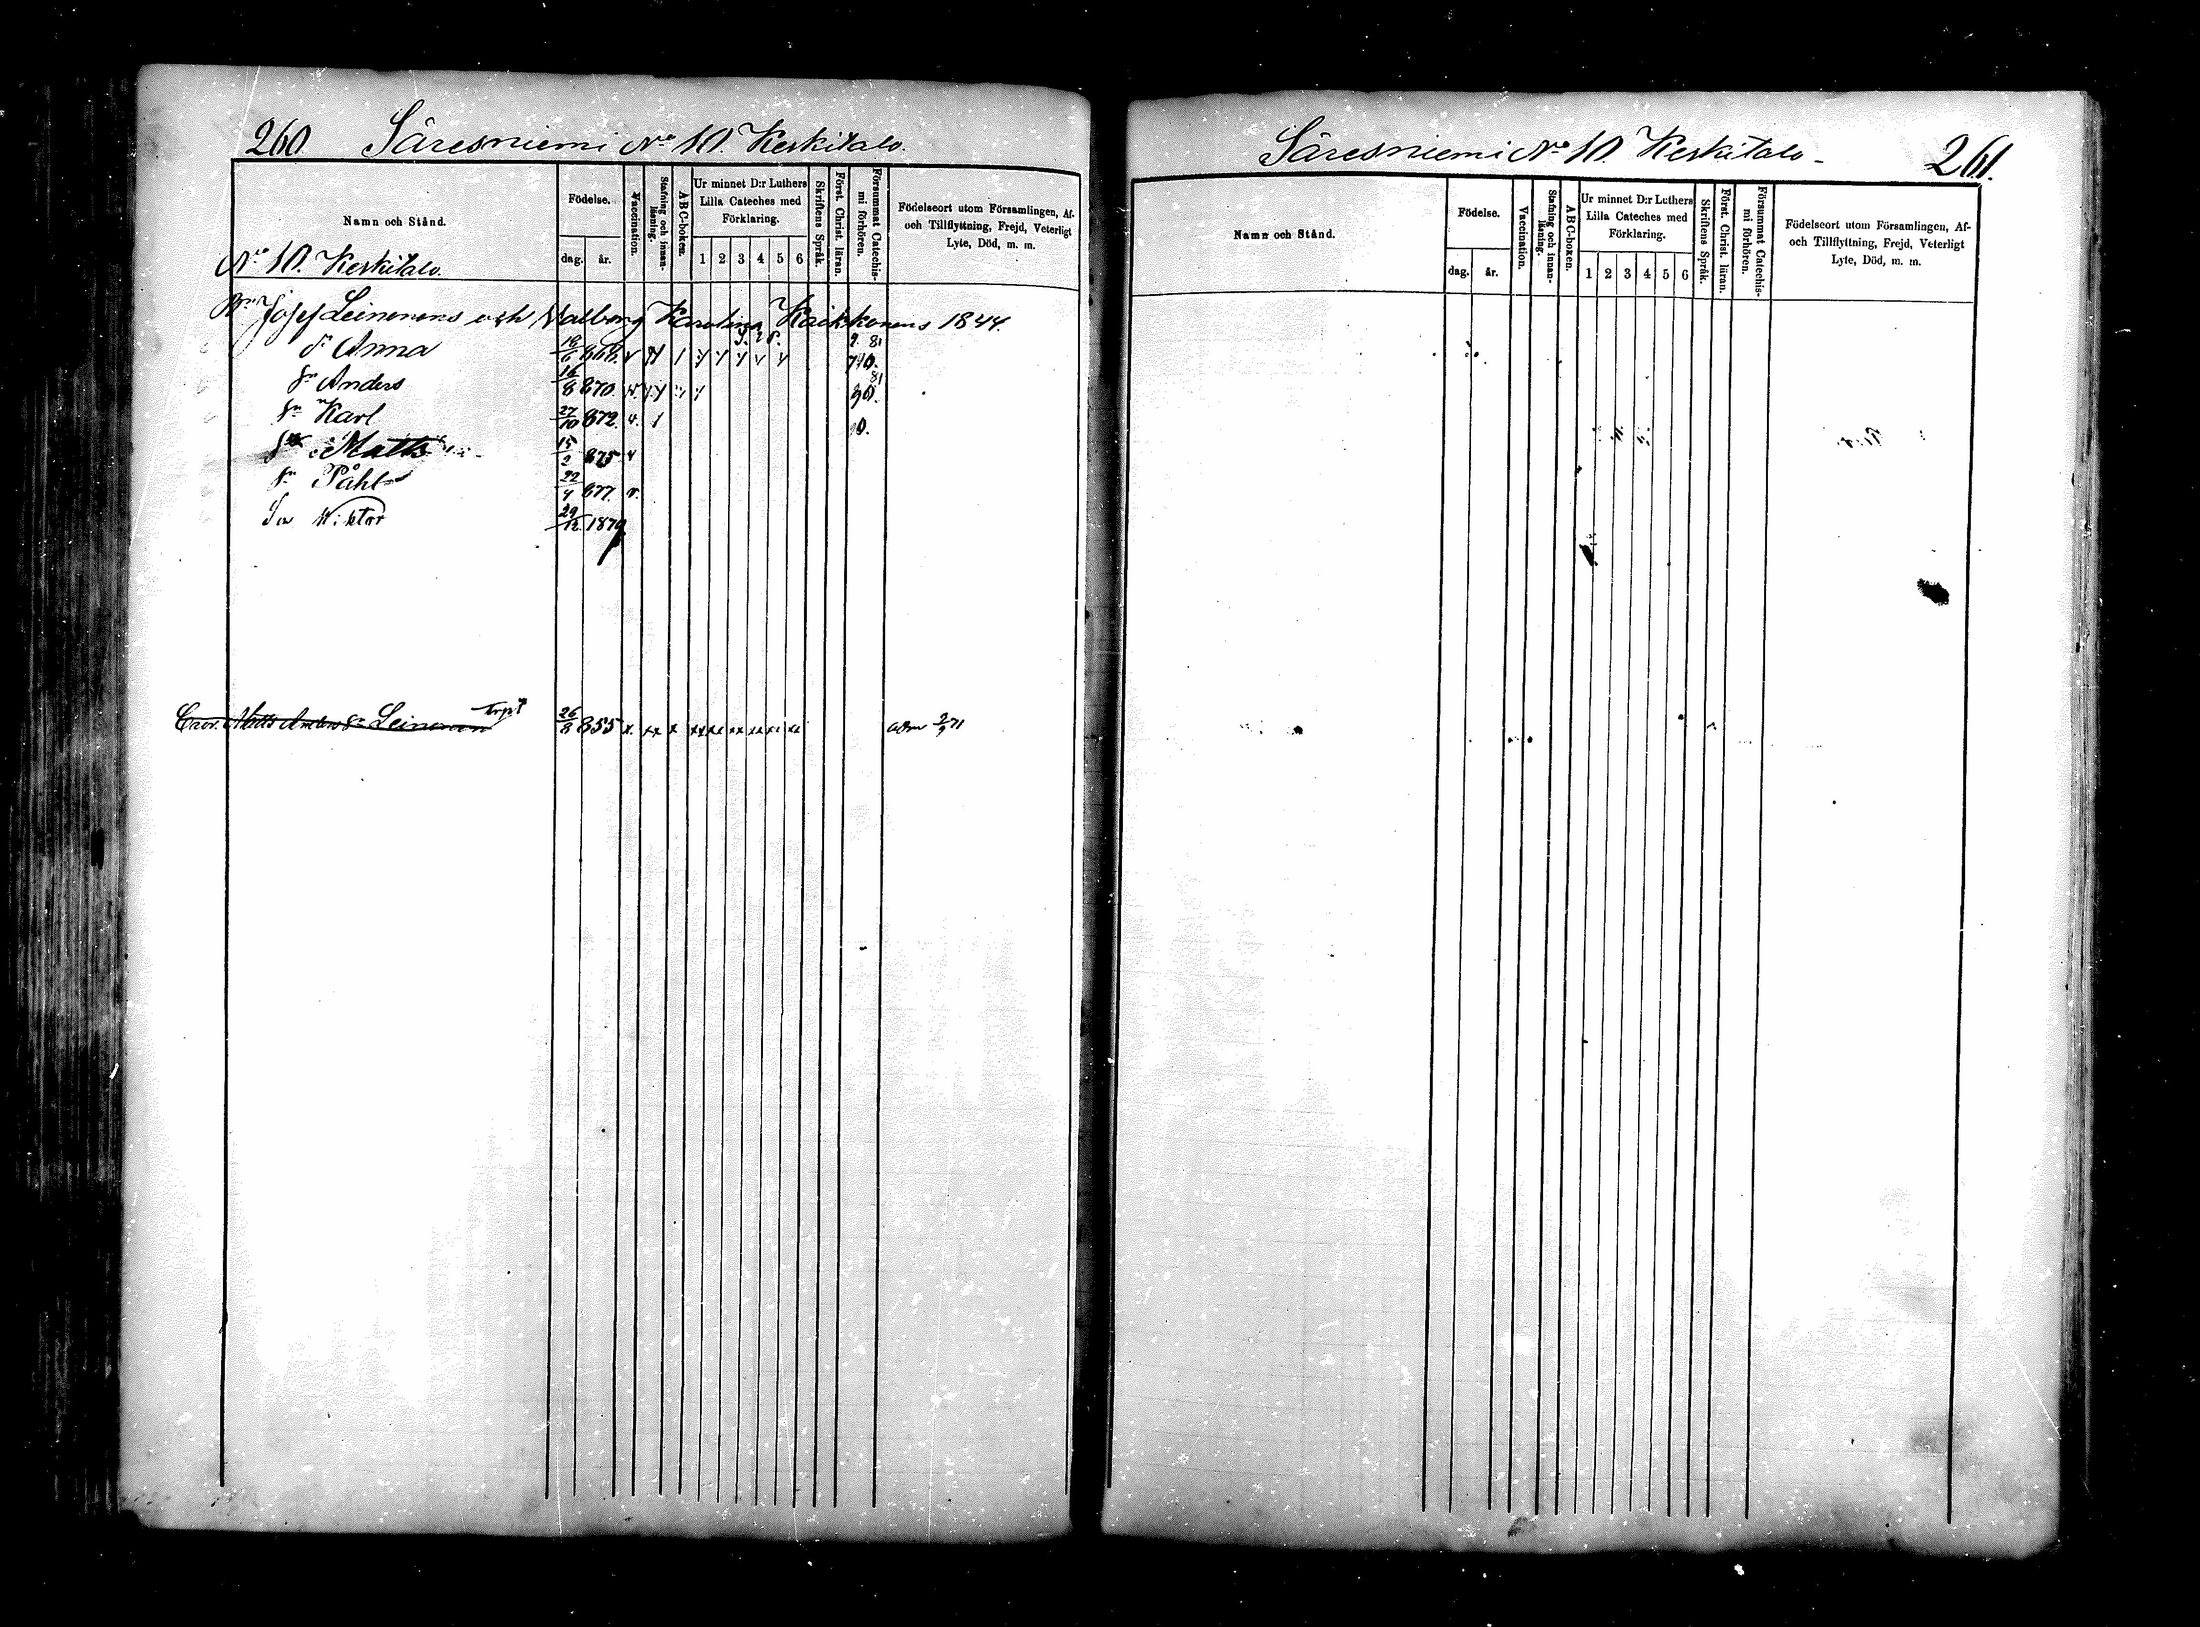 260. Säresniemi No 10. Keskitalo.
Namn och Stånd.
Födelse.
dag. år.
Vaccination.
Stafning och innan-läsning.
ABC-boken.
Ur minnet D:r Luthers
Lilla Cateches med
Förklaring.
1 2 3 4 5 6
Skriftens Språk.
Först. Christ. läran.
Försummat Catechis-
mi förhören.
Födelseort utom Församlingen, Af-
och Tillflyttning, Frejd, Veterligt
Lyte, Död, m. m.
No 10. Keskitalo.
Josef Leinonens och Valborg Karolina Kaikkonens 1844.
dr Anna 18/6 868. v
Sn Anders 16/8 870. v.
Sn Karl 27/10 872. v.
Sn Matts 15/2 875 v
Sn Påhl 22/4 877. v.
Son Wiktor 29/12 1879
Matts Anders Sn Leinonen 26/8 855 x. xx x xx xx xx xx xx xx
Säresniemi No 10 Keskitalo 261.
Namn och Stånd.
Födelse.
dag. år.
Vaccination.
Stafning och innan-läsning.
ABC-boken.
Ur minnet D:r Luthers
Lilla Cateches med
Förklaring.
1 2 3 4 5 6
Skriftens Språk.
Först. Christ. läran.
Försummat Catechis-
mi förhören.
Födelseort utom Församlingen, Af-
och Tillflyttning, Frejd, Veterligt
Lyte, Död, m. m.